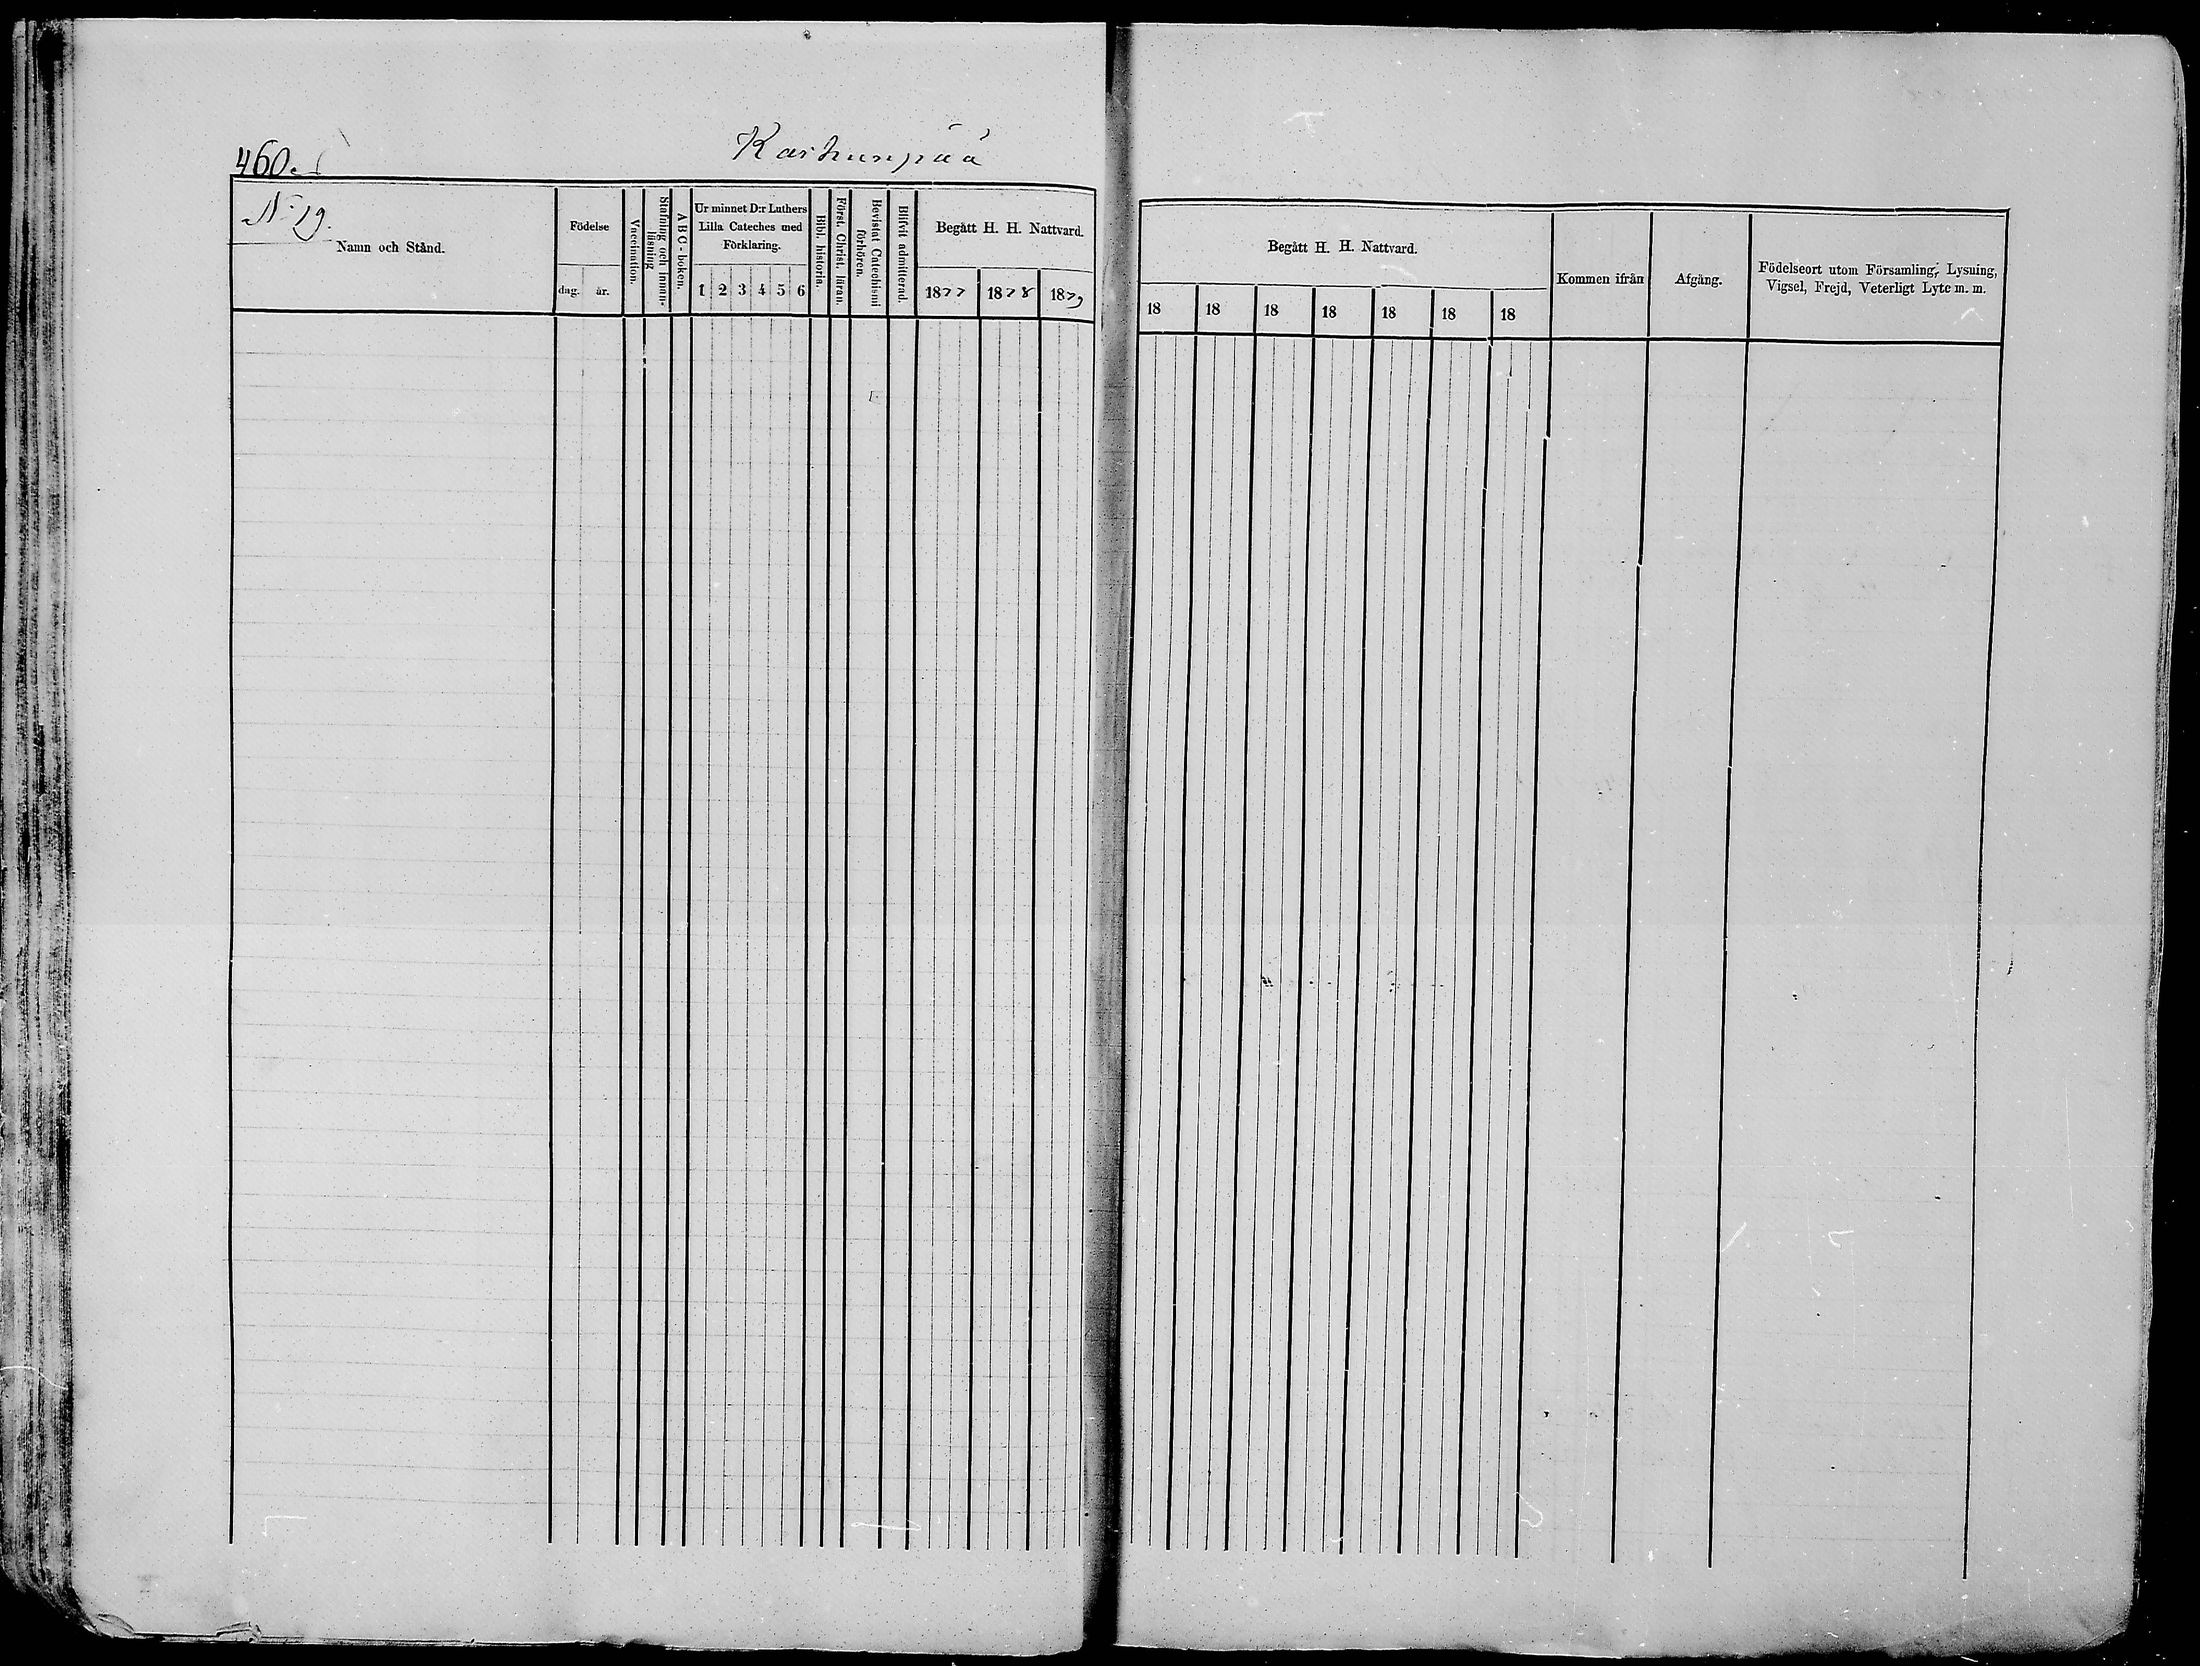 460.
Karhunpää
No 19.
Namn och Stånd.
Födelse
dag. år.
Vaccination.
Stafning och innan-
läsning
ABC-boken.
Ur minnet D:r Luthers
Lilla Cateches med
Förklaring.
1 2 3 4 5 6
Bibl. historia.
Först. Christ. läran.
Bevistat Catechismi
förhören.
Blifvit admitterad.
Begått H. H. Nattvard.
1877 1878 1879
Begått H. H. Nattvard.
18 18 18 18 18 18 18
Kommen ifrån
Afgång.
Födelseort utom Församling, Lysning,
Vigsel, Frejd, Veterligt Lyte m. m.